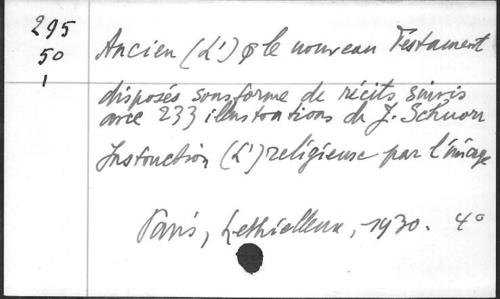 295
50
1
Ancien (L') & le nouveau Testament
disposés sous forme de récits suivis
avec 233 illustrations de J. Schnorr
Instruction (L') religieuse par l'image
Paris, Lethielleux, 1930. 4°